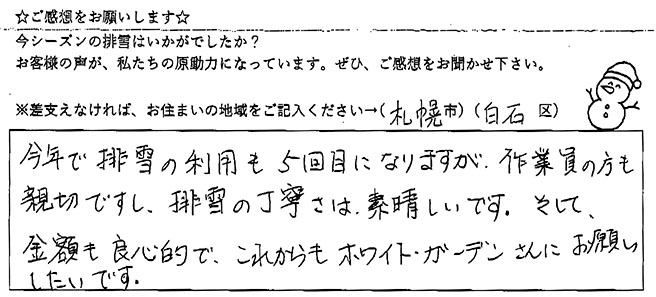 ☆ご感想をお願いします☆
今シーズンの排雪はいかがでしたか？
お客様の声が、私たちの原動力になっています。ぜひ、ご感想をお聞かせ下さい。
※差支えなければ、お住まいの地域をご記入ください→(札幌市) (白石 区)
今年で排雪の利用も5回目になりますが、作業員の方も
親切ですし、排雪の丁寧さは、素晴しいです。そして、
金額も良心的で、これからもホワイト・ガーデンさんにお願い
したいです。